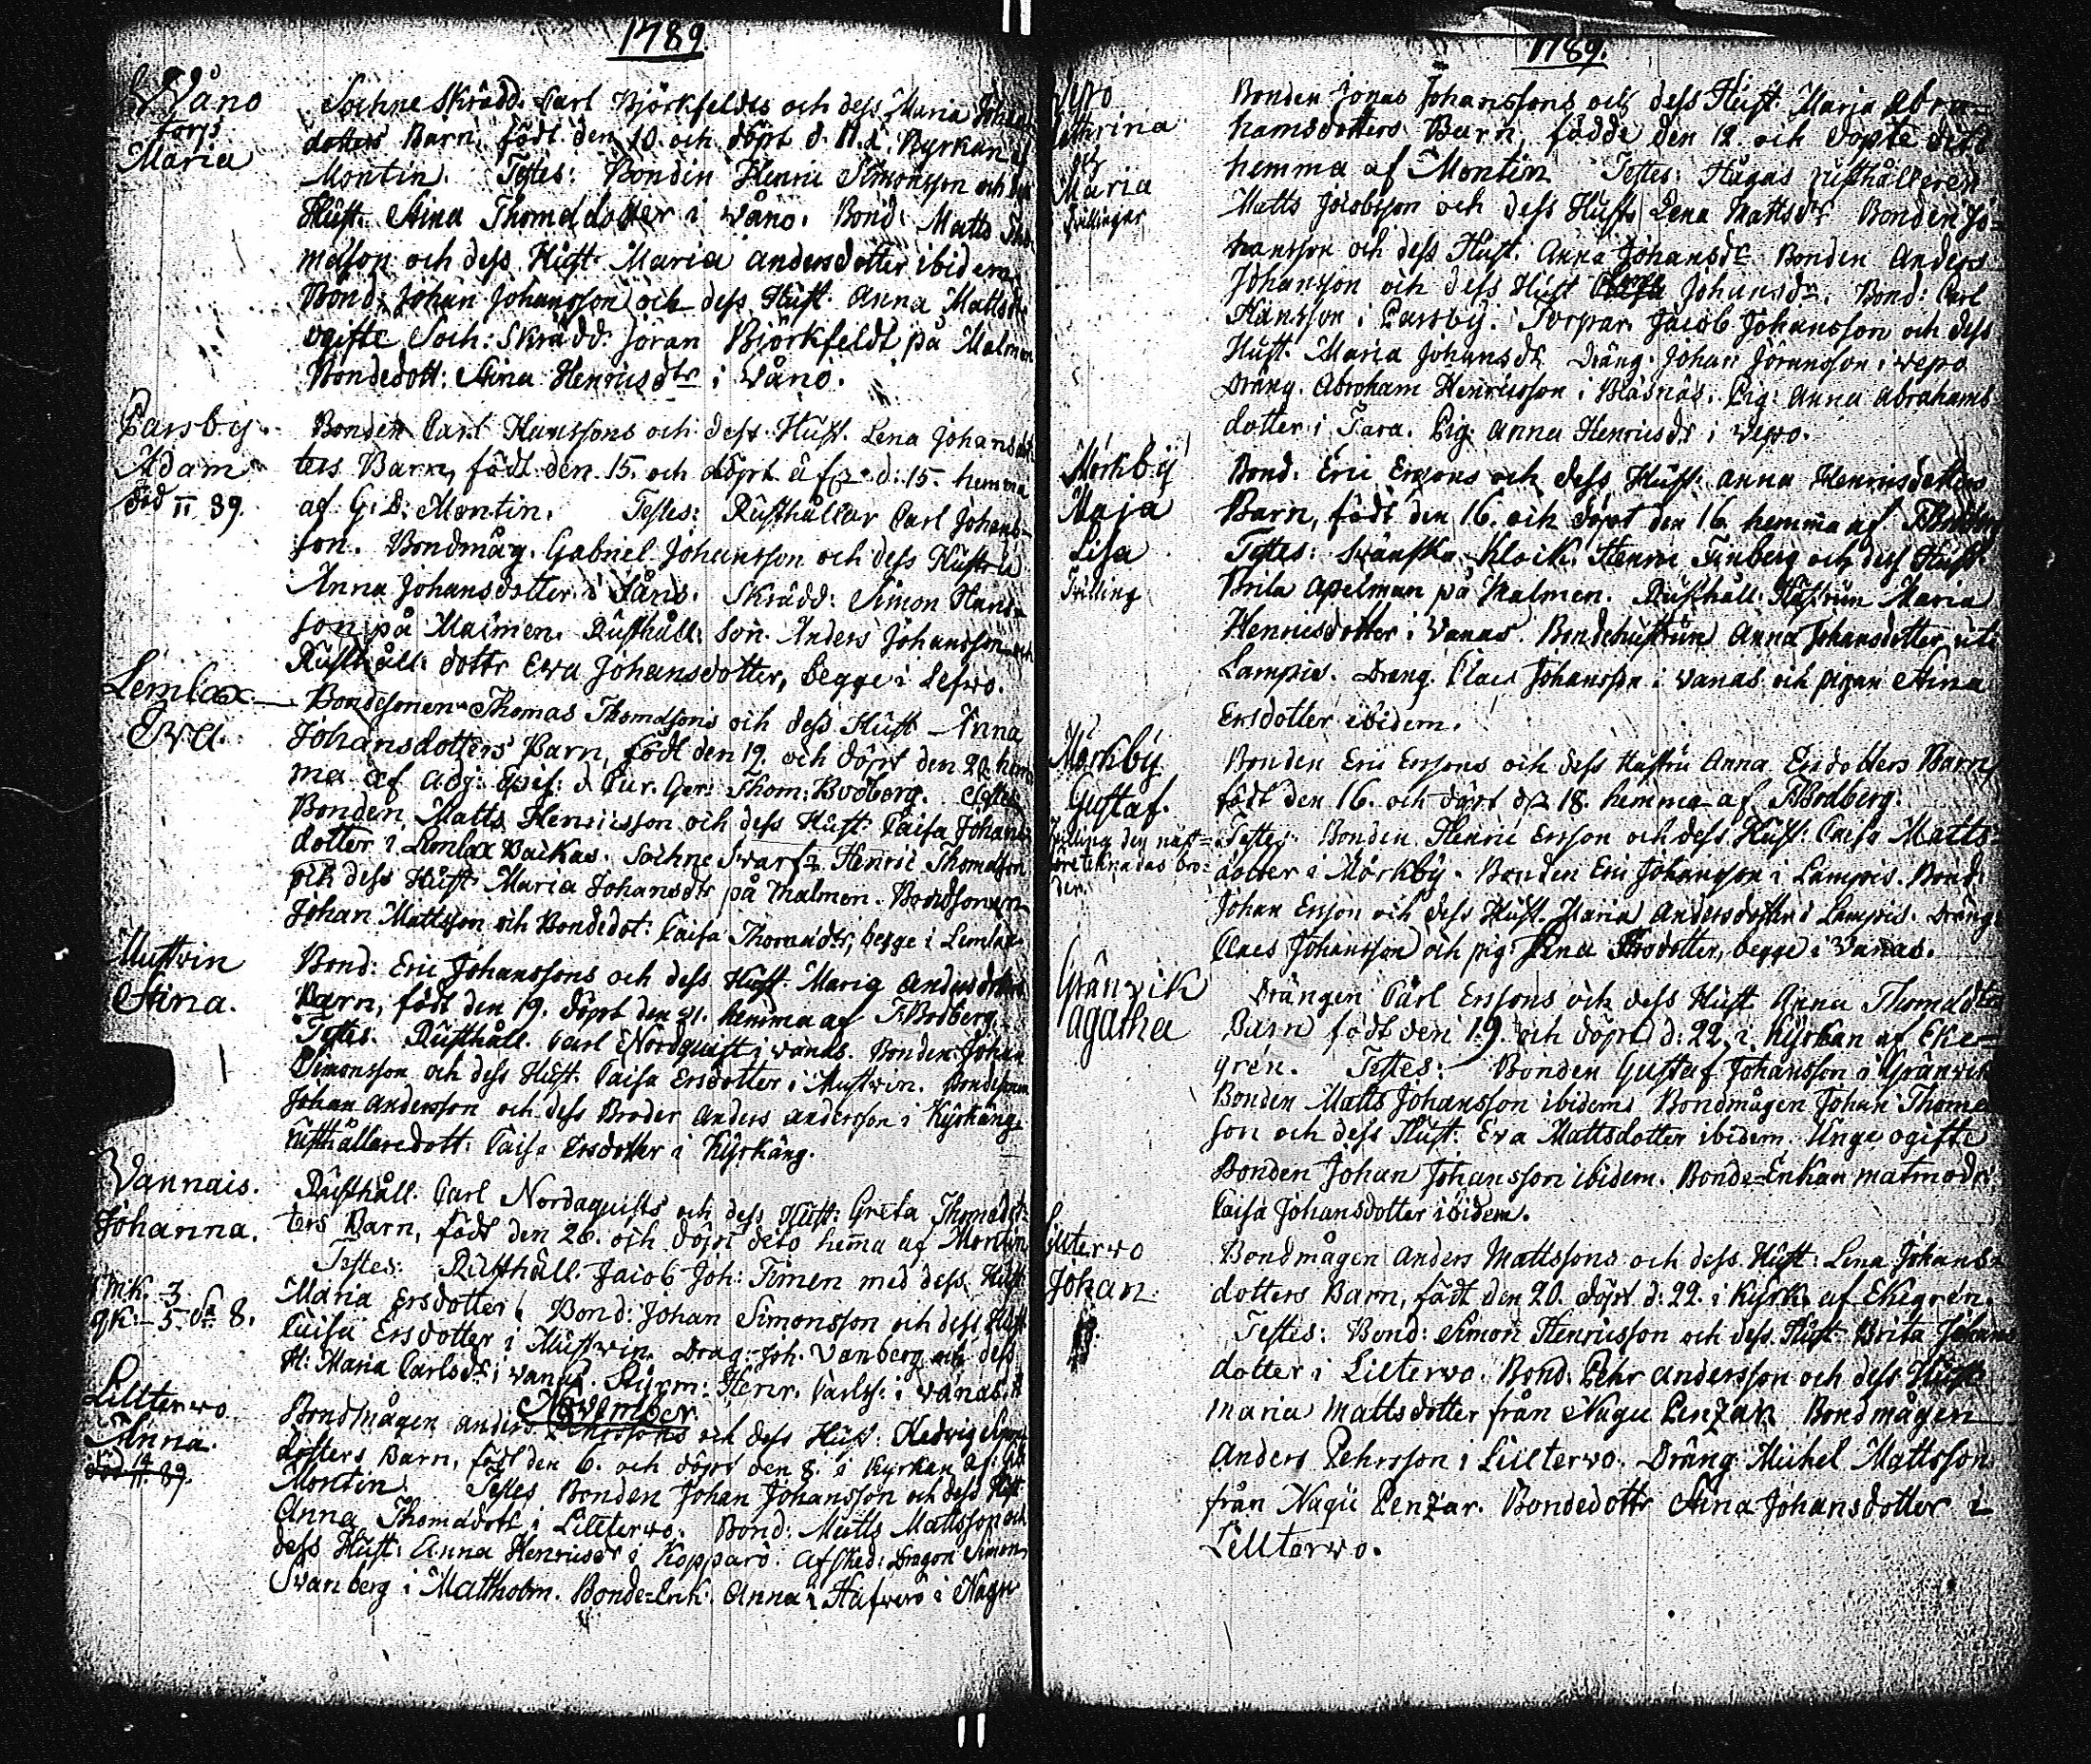 1789.
Wåno
torp
Maria
Sochne Skrädd. Carl Björkfeldts och dess Maria Johans
dotters Barn, födt den 10. och döpt d. 11. i Kyrkan af
Montin. Testes: Bonden Henric Simonsson och dess
Hust. Stina Thomasdotter i Wåno. Bond: Matts Tho-
masson och dess Hust. Maria Andersdotter ibidem
Bond: Johan Johansson och dess Hust. Anna Mattsdr
ogifte Soch: Skrädd: Jöran Björkfeldt på Malmen
Bondedott: Stina Henricsdtr i Wåno.
Parsby.
Adam
död 11 89.
Bonden Carl Hanssons och dess Hust. Lena Johansdot-
ters Barn, födt den 15. och döpt d. 15. hemma
af G. D. Montin. Testes: Rusthållar Carl Johans-
son. Bondmåg. Gabriel Johansson och dess Hustru
Anna Johansdotter i Skrädd: Simon Hans-
son på Malmen. Rusthåll: son. Anders Johansson och
Rusthåll: dottr Eva Johansdotter, begge i Lefwo.
Lemlax
Eva.
Bondesonen Thomas Thomassons och dess Hust Anna
Johansdotters Barn, födt den 19. och döpt den 20. hem
ma af Adj: Thom: Bodberg. Testes
Bonden Matts Henricsson och dess Hust: Caisa Johans
dotter i Lemlax Backas. Sochne Swarf. Henric Thomasson
och dess Hust: Maria Johansdtr på Malmen. Bondsonen
Johan Mattsson och Bondedot: Caisa Thomasdtr, begge i Lemlax
Mustvin
Stina.
Bond: Eric Johanssons och dess Hust. Maria Andersdotters
Barn, födt den 19. döpt den 21. hemma af T. Bodberg
Testes. Rusthåll. Carl Nordquist i Vanas. Bonden Johan
Simonsson och dess Hust. Caisa Ersdotter i Mustvin. Bondesonen
Johan Andersson och dess Broder Anders Andersson i Kyrkäng.
rusthållaredott. Caisa Ersdotter i Kyrkäng.
Vannais.
Johanna.
Rusthåll. Carl Nordaquists och dess Hust: Greta Thomasdot-
ters Barn, födt den 26. och döpt dito hemma af Montin
Testes: Rusthåll. Jacob Joh: Timen med dess Hust
Maria Ersdotter. Bond: Johan Simonsson och dess Hust
Caisa Ersdotter i Mustvin. Drag: Joh. Vanberg och dess
H: Maria Carlsdr i Vanas. Henr. Carlss: i Vanas.
November
Lillterwo
Anna.
död 14/11 89.
Bondmågen Anders och dess Hust: Hedvig
dotters Barn, födt den 6. och döpt den 8. i Kyrkan af
Montin. Testes Bonden Johan Johansson och dess Hust
Anna Thomasdott i Lillterwo. Bond: Matts Mattsson och
dess Hust: Anna Henricsdr i Kopparö. Afsked: Dragon Simon
Svanberg i Mattholm. Bonde-Enk. Anna i Hafverö i Nagu
1789.
Wepo
Cathrina
och
Maria
Tvillingar
Bonden Jonas Johanssons och dess Hust. Maria Abra-
hamsdotters Barn, födde den 12. och döpte dito
hemma af Montin Testes: Hågas rusthålleren
Matts Jacobsson och dess Hust: Lena Mattsdr Bonden Jo-
hansson och dess Hust. Anna Johansdr Bonden Anders
Johansson och dess Hust Johansdr. Bond: Carl
Hansson i Parsby. Torpar. Jacob Johansson och dess
Hust. Maria Johansdr Dräng. Johan Jöransson i Wepo
Dräng. Abraham Henricsson i Bläsnäs. Pig: Anna Abrahams
dotter i Tara. Pig: Anna Henricsdr i Wepo.
Mörkby
Maja
Lisa
Tvilling
Bond: Eric Ersons och dess Hust: Anna Henricsdotters
Barn, födt den 16. och döpt den 16. hemma af T. Bodberg
Testes: Svänska Klock: Henric Finberg och dess Hust:
Brita Apelman på Malmen. Rusthåll. Hustrun Maria
Henricsdotter i Vanas. Bondehustrun Anna Johansdotter uti
Lampis. Dräng. Claes Johansson i Vanas och pigan Stina
Ersdotter ibidem.
Mörkby
Gustaf.
Tvilling den näst-
företeknadas bro-
der.
Bonden Eric Erssons och dess Hustru Anna Ersdotters Barn,
födt den 16. och döpt d. 18. hemma af T. Bodberg.
Testes: Bonden Henric Ersson och dess Hust: Caisa Matts-
dotter i Mörkby. Bonden Eric Johansson i Lampis. Bond:
Johan Ersson och dess Hust. Maria Andersdotter i Lampis. Dräng
Claes Johansson och pig. Ersdotter, begge i Vanas.
Gränvik
Agatha
Drängen Carl Erssons och dess Hust Anna Thomasdtrs
Barn födt den 19. och döpt d: 22. i Kyrkan af Eke-
gren. Testes: Bonden Gustaf Johansson i Gränvik
Bonden Matts Johansson ibidem. Bondmågen Johan Thomas
son och dess Hust: Eva Mattsdotter ibidem. Unge ogifte
Bonden Johan Johansson ibidem. Bonde-Enkan matmodr
Caisa Johansdotter ibidem.
Lillterwo
Johan
Bondmågen Anders Mattssons och dess Hust: Lena Johans-
dotters Barn, födt den 20. döpt d: 22. i Kyrk. af Ekegren.
Testes: Bond: Simon Henricsson och dess Hust Brita Johans
dotter i Lillterwo. Bond. Pehr Andersson och dess Hust
Maria Mattsdotter från Nagu Penzar. Bondmågen
Anders Pehrsson i Lillterwo. Dräng Michel Mattsson
från Nagu Penzar. Bondedottr Stina Johansdotter i
Lillterwo.